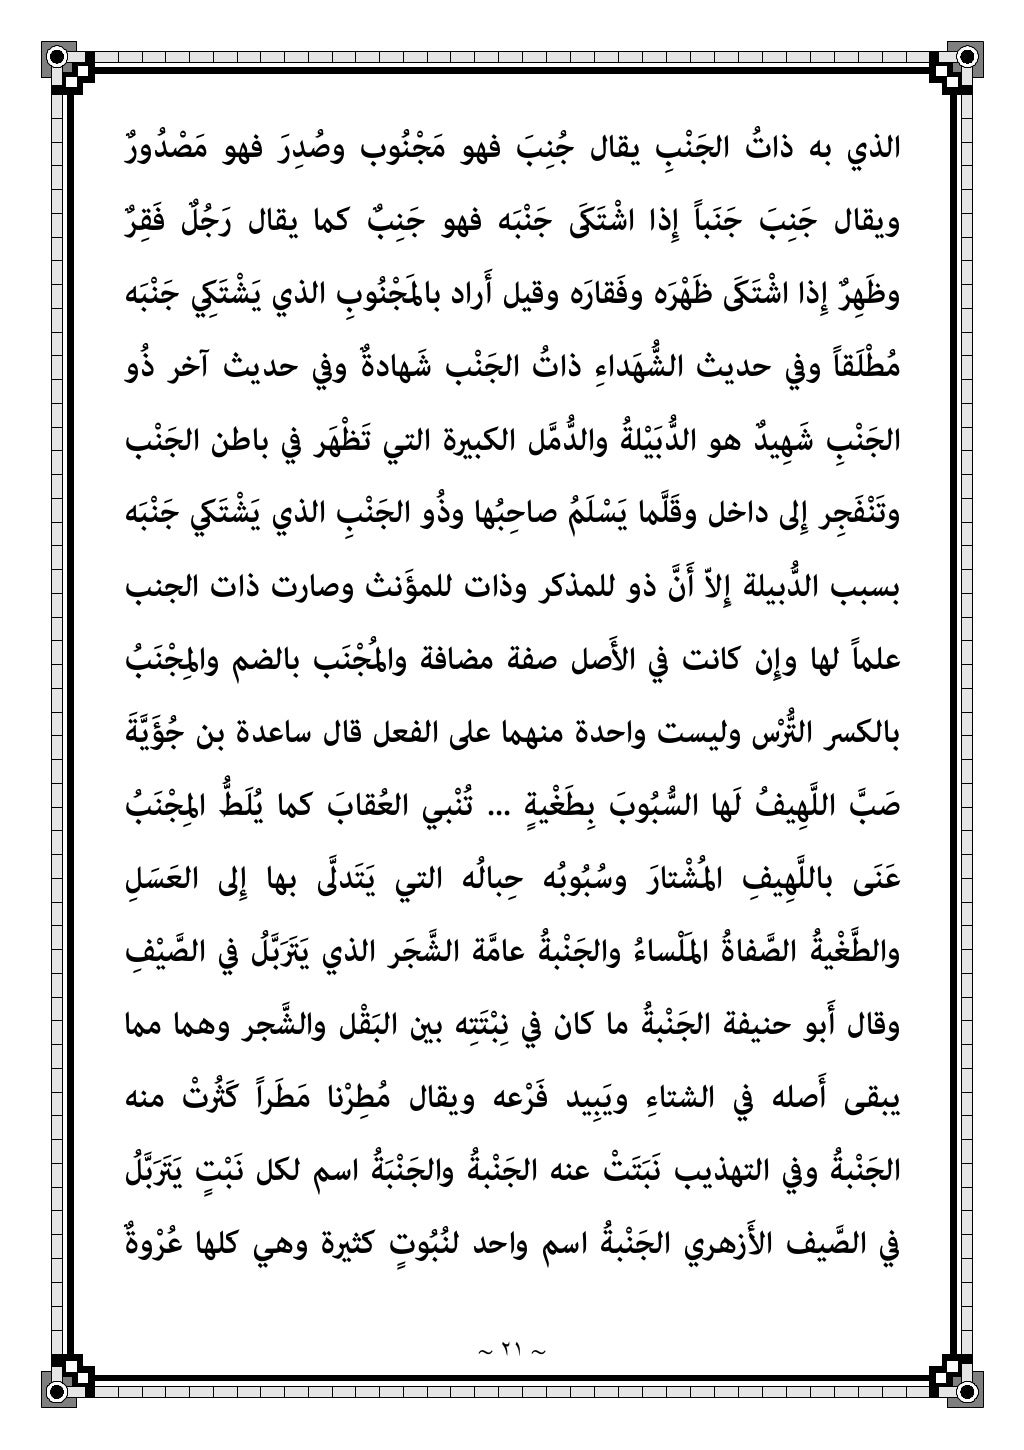 الذي به ذاتُ الجَنْبِ يقال جُنِبَ فهو مَجْنُوب وصُدِرَ فهو مَصْدُورٌ
ويقال جَنِبَ جَنَباً إِذا اشْتَكَى جَنْبَه فهو جَنِبٌ كما يقال رَجُلٌ فَقِرٌ
وظَهِرٌ إِذا اشْتَكَى ظَهْرَه وفَقارَه وقيل أَراد بالمَجْنُوبِ الذي يَشْتَكِي جَنْبَه
مُطْلَقاً وفي حديث الشُّهَداءِ ذاتُ الجَنْب شَهادةٌ وفي حديث آخر ذُو
الجَنْبِ شَهِيدٌ هو الدُّبَيْلةُ والدُّمَّل الكبيرة التي تَظْهَر في باطن الجَنْب
وتَنْفَجِر إِلى داخل وقَلَّما يَسْلَمُ صاحِبُها وذُو الجَنْبِ الذي يَشْتَكي جَنْبَه
بسبب الدُّبيلة إِلاّ أَنَّ ذو للمذكر وذات للمؤَنث وصارت ذات الجنب
علماً لها وإِن كانت في الأَصل صفة مضافة والمُجْنَب بالضم والمِجْنَبُ
بالكسر التُّرْس وليست واحدة منهما على الفعل قال ساعدة بن جُؤَيَّةَ
صَبَّ اللَّهِيفُ لَها السُّبُوبَ بِطَغْيةٍ ... تُنْبي العُقابَ كما يُلَطُّ المِجْنَبُ
عَنَى باللَّهِيفِ المُشْتارَ وسُبُوبُه حِبالُه التي يَتَدلَّى بها إِلى العَسَلِ
والطَّغْيةُ الصَّفاةُ المَلْساءُ والجَنْبةُ عامَّة الشَّجَر الذي يَتَرَبَّلُ في الصَّيْفِ
وقال أَبو حنيفة الجَنْبةُ ما كان في نِبْتَتِه بين البَقْل والشَّجر وهما مما
يبقى أَصله في الشتاءِ ويَبِيد فَرْعه ويقال مُطِرْنا مَطَراً كَثُرتْ منه
الجَنْبةُ وفي التهذيب نَبَتَتْ عنه الجَنْبةُ والجَنْبَةُ اسم لكل نَبْتٍ يَتَرَبَّلُ
في الصَّيف الأَزهري الجَنْبةُ اسم واحد لنُبُوتٍ كثيرة وهي كلها عُرْوةٌ
~ ٢١ ~